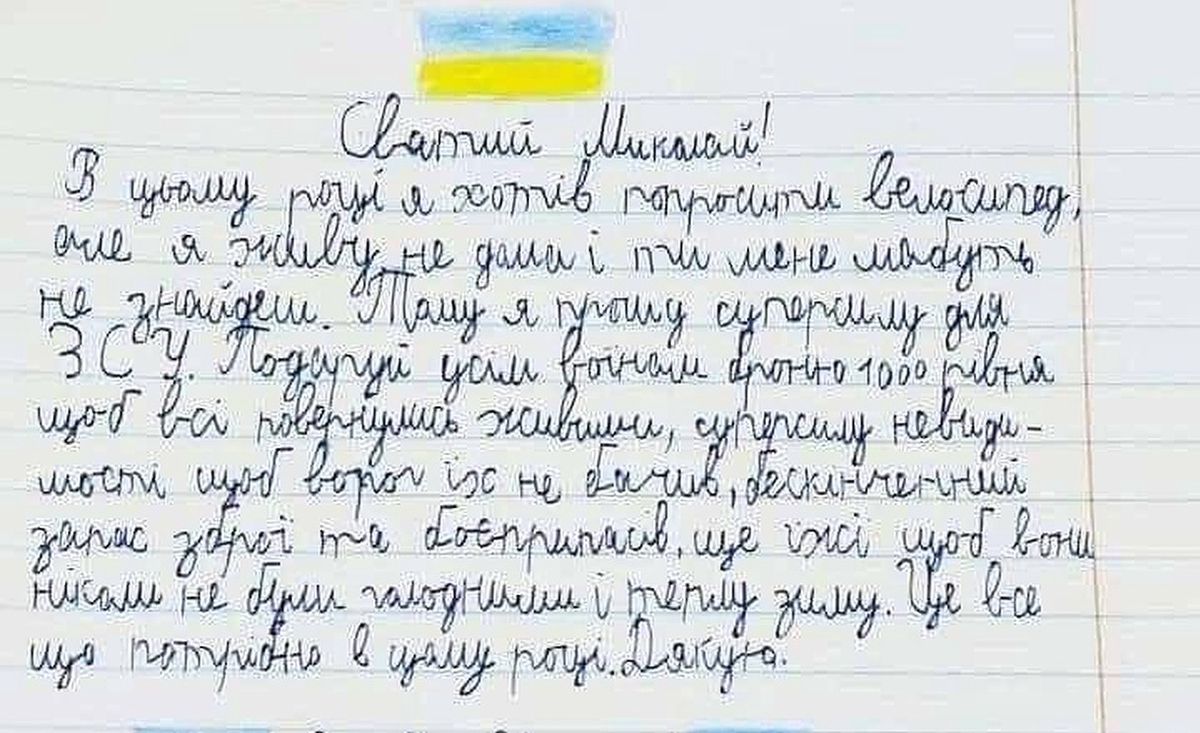 Святий Миколай!
В цьому році я хотів попросити велосипед,
але я живу не дома і ти мене мабуть
не знайдеш. Тому я прошу суперсилу для
ЗСУ. Подаруй усім воїнам броню 1000 рівня
щоб всі повернулись живими, суперсилу невиди-
мости щоб ворог їх не бачив, бескінченний
запас зброї та боєприпасів, ще їжі щоб вони
ніколи не були голодними і теплу зиму. Це все
що потрібно в цьому році. Дякую.